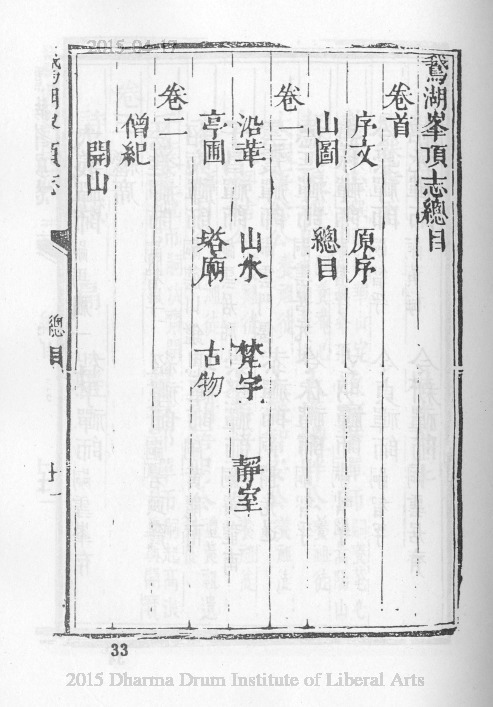 2015-04-17
鵞湖峯頂志總目
卷首
序文 原序
山圖 總目
卷一
沿革 山水 梵宇 靜室
亭圃 塔廟 古物
卷二
僧紀
開山
總目
33
2015 Dharma Drum Institute of Liberal Arts